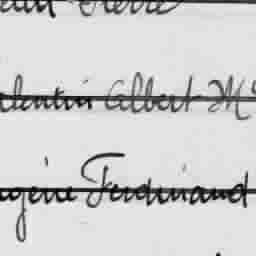 Pierre
lentin Albert M
gène Ferdinand